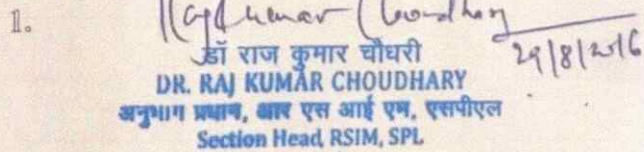 1. Raj Kumar Choudhary
डॉ राज कुमार चौधरी 29/8/2016
DR. RAJ KUMAR CHOUDHARY
अनुभाग प्रधान, आर एस आई एम, एसपीएल
Section Head, RSIM, SPL